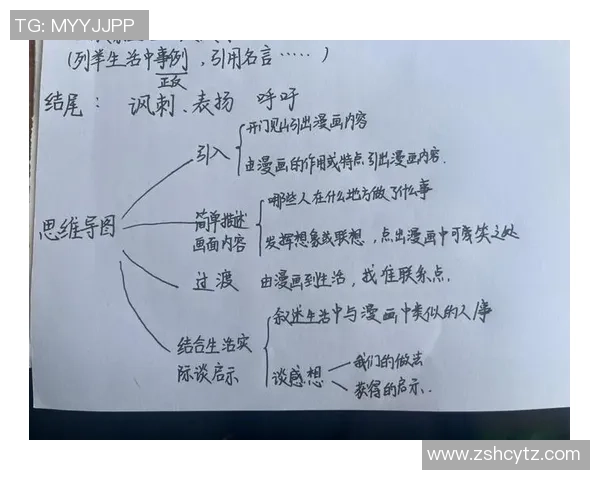 TG: MYYJJPP
(列举生活中事例,引用名言……)
正反
结尾: 讽刺、表扬 呼吁
思维导图
引入
开门见山引出漫画内容
由漫画的作用或特点引出漫画内容.
简单描述
画面内容
哪些人在什么地方做了什么事
发挥想象或联想,点出漫画中可笑之处
过渡 由漫画到生活,找准联系点.
结合生活实
际谈启示
叙述生活中与漫画中类似的人事
谈感想
我们的做法
获得的启示.
www.zshcytz.com